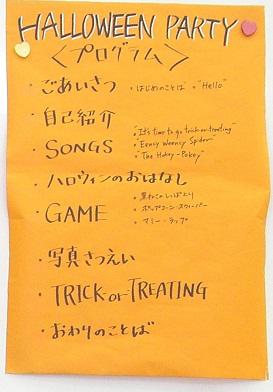 HALLOWEEN PARTY
<プログラム>
・ごあいさつ ・はじめのことば ・"Hello"
・自己紹介
・SONGS
・"It's time to go trick-or-treating"
・"Eency Weency Spider"
・"The Hokey-Pokey"
・ハロウィンのおはなし
・GAME
・黒ねこのしっぽとり
・ポップコーン・スウィーパー
・マミー・ラップ
・写真さつえい
・TRICK-or-TREATING
・おわりのことば